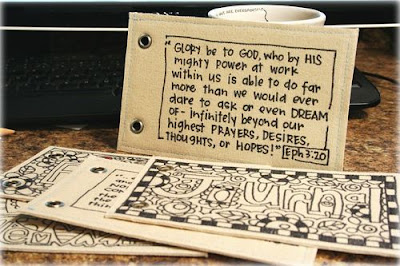 "GLORY be to GOD, who by HIS
mighty POWER at work
within us is able to do far
more than we would ever
dare to ask or even DREAM
OF - infinitely beyond our
highest PRAYERS, DESIRES,
THOUGHTS, or HOPES!" Eph 3:20